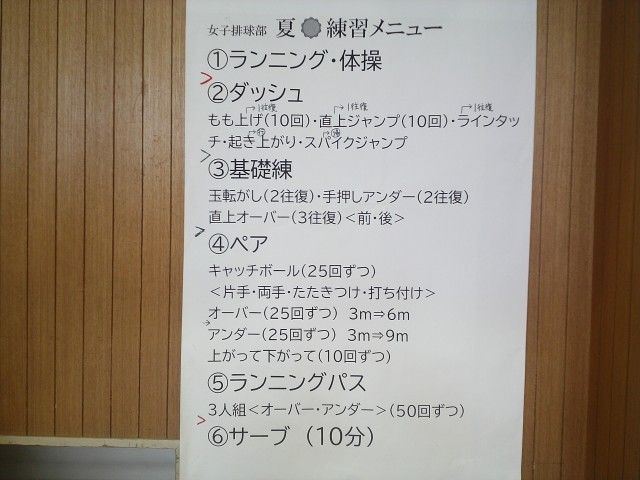 女子排球部 夏 練習メニュー
①ランニング・体操
②ダッシュ
→1往復 →1往復 →1往復
もも上げ(10回)・直上ジャンプ(10回)・ラインタッ
チ・起き上がり・スパイクジャンプ
③基礎練
玉転がし(2往復)・手押しアンダー(2往復)
直上オーバー(3往復)<前・後>
④ペア
キャッチボール(25回ずつ)
<片手・両手・たたきつけ・打ち付け>
オーバー(25回ずつ) 3m⇒6m
アンダー(25回ずつ) 3m⇒9m
上がって下がって(10回ずつ)
⑤ランニングパス
3人組<オーバー・アンダー>(50回ずつ)
⑥サーブ (10分)